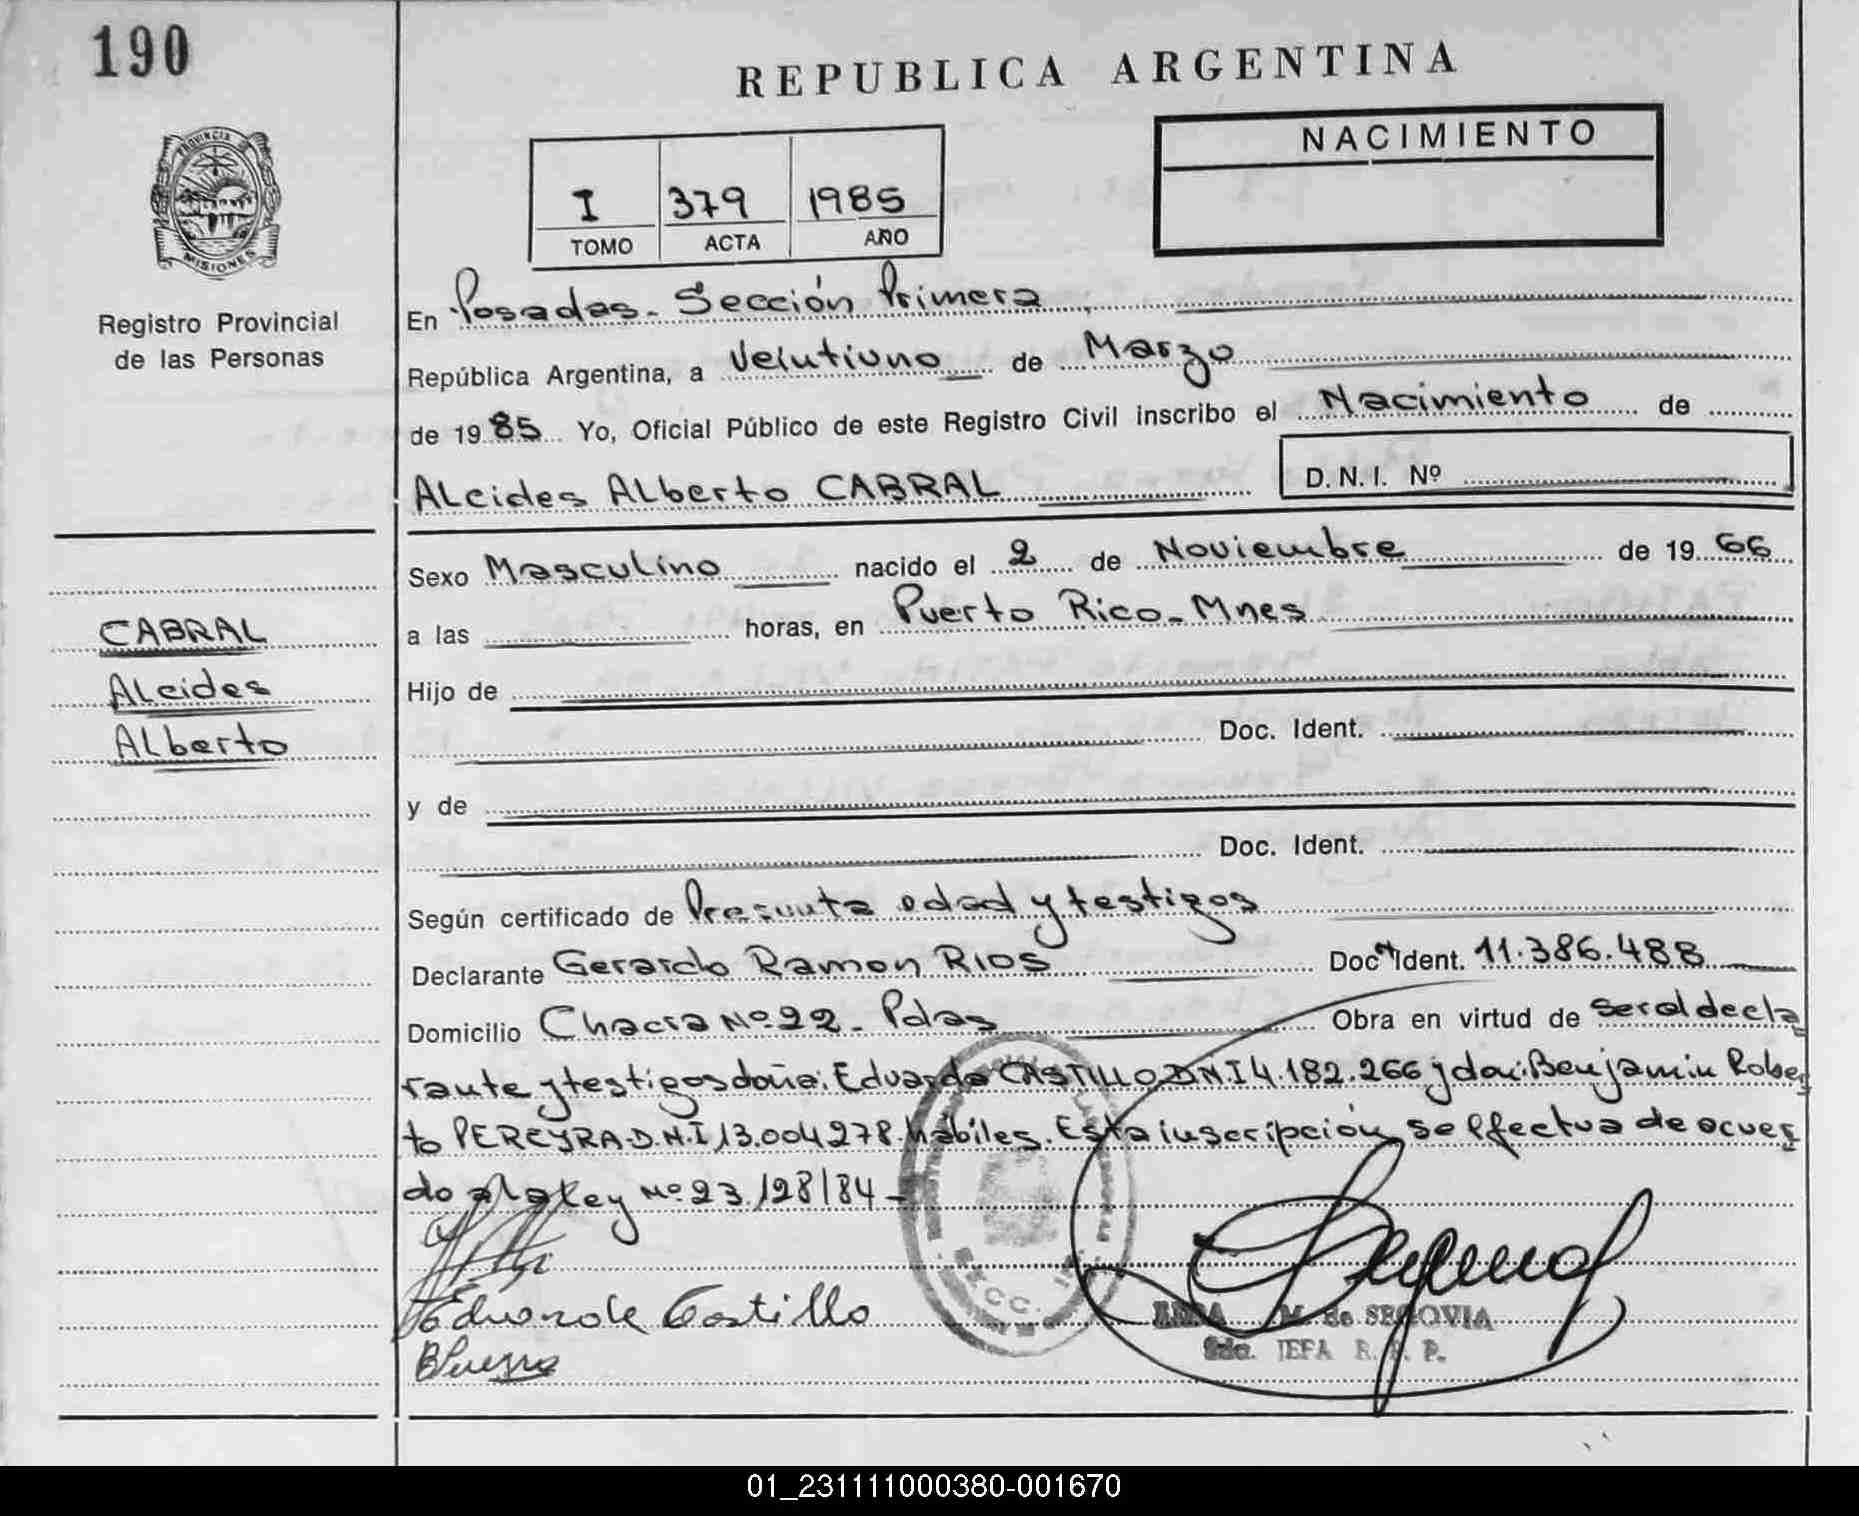 190
REPUBLICA ARGENTINA
PROVINCIA DE
MISIONES
Registro Provincial
de las Personas
I 379 1985
TOMO ACTA AÑO
NACIMIENTO
En Posadas - Sección Primera
República Argentina, a Veintiuno de Marzo
de 19 85 Yo, Oficial Público de este Registro Civil inscribo el Nacimiento de
Alcides Alberto CABRAL D. N. I. Nº
Sexo Masculino nacido el 2 de Noviembre de 19 66
CABRAL
Alcides
Alberto
a las horas, en Puerto Rico - Mnes
Hijo de
Doc. Ident.
y de
Doc. Ident.
Según certificado de Presunta edad y testigos
Declarante Gerardo Ramon RIOS Doc. Ident. 11.386.488
Domicilio Chacra Nº 22 - Pdas Obra en virtud de ser al decla
rante y testigos doña: Eduarda CASTILLO D.N.I 4.182.266 y don: Benjamin Rober
to PEREYRA - D.N.I 13.004278 - hábiles. Esta inscripción se efectua de acuer
do a la Ley Nº 23.128/84 -
Castillo
M. de SEGOVIA
2da. JEFA R. P. P.
01_231111000380-001670